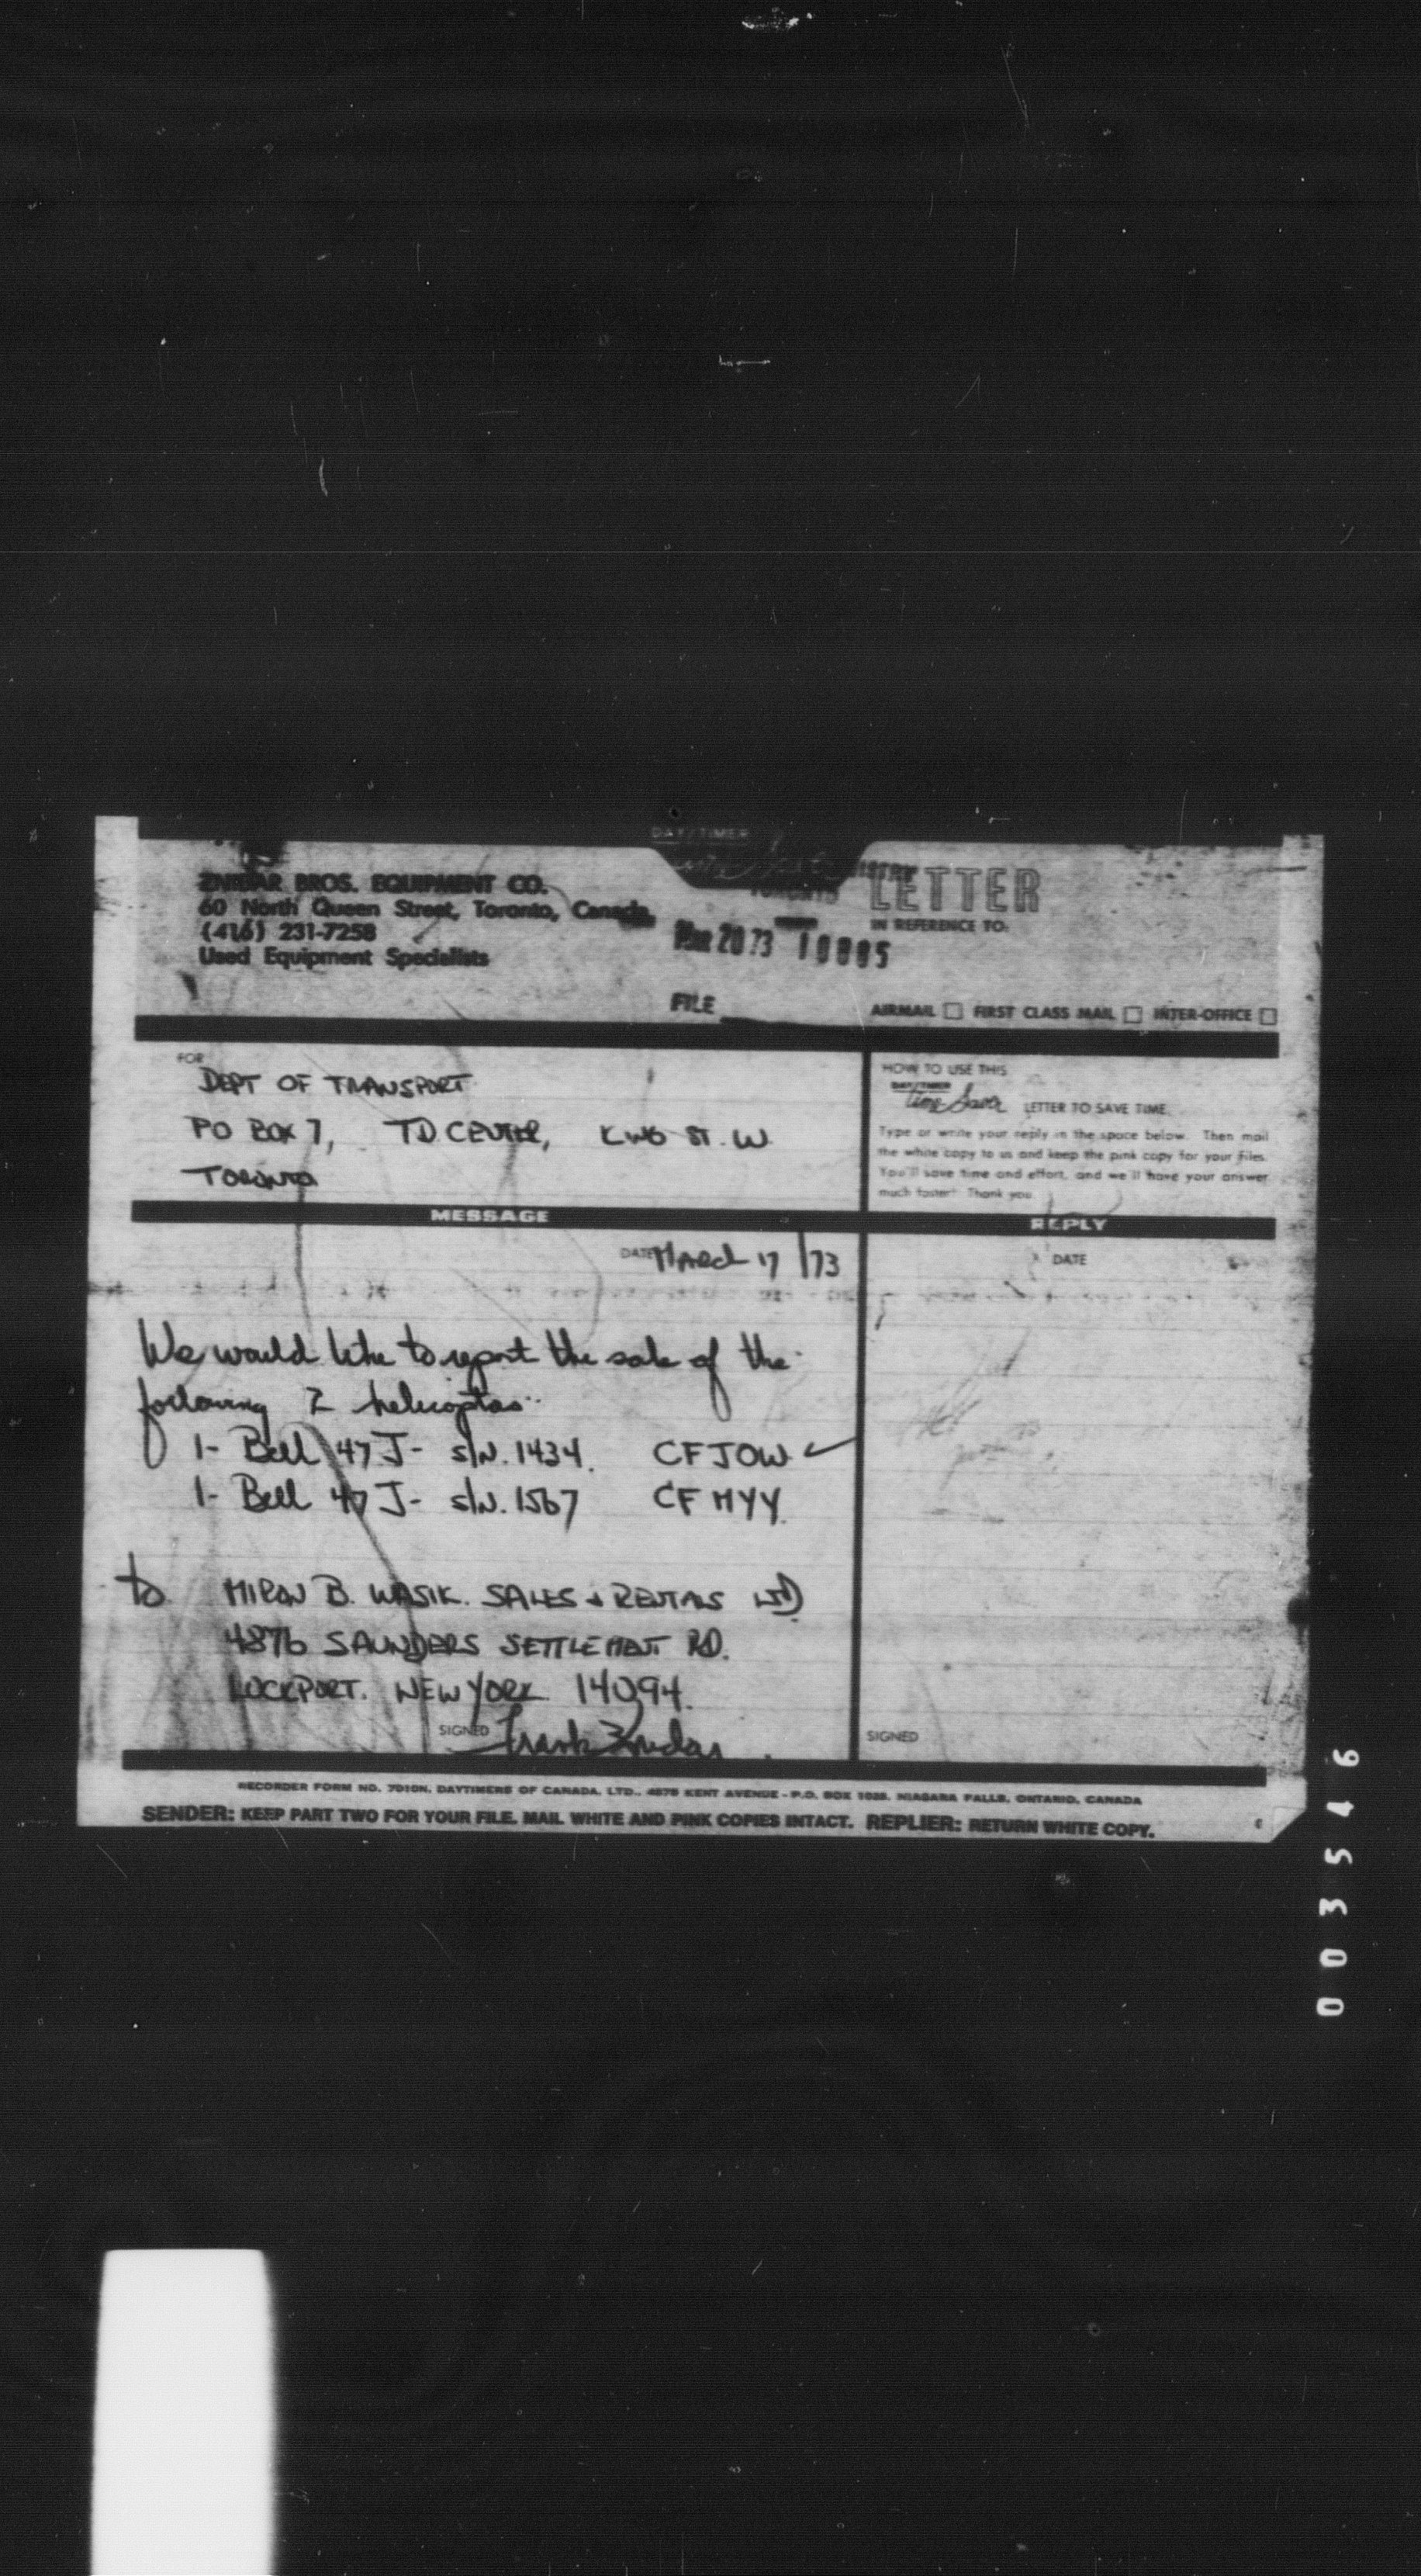 DAY/TIMER
ZNIDAR BROS. EQUIPMENT CO.
60 North Queen Street, Toronto, Canada
(416) 231-7258
Used Equipment Specialists
TORONTO
MAR 20 73 10005
FILE
LETTER
IN REFERENCE TO:
AIRMAIL FIRST CLASS MAIL INTER-OFFICE
FOR
DEPT OF TRANSPORT
PO BOX 7, TD CENTER, KING ST. W
TORONTO
HOW TO USE THIS
DAY/TIMER
Time Saver LETTER TO SAVE TIME.
Type or write your reply in the space below. Then mail
the white copy to us and keep the pink copy for your files.
You'll save time and effort, and we'll have your answer
much faster! Thank you.
MESSAGE
REPLY
DATE March 17/73
DATE
We would like to report the sale of the
following 2 helicopters:
1- Bell 47 J- s/N. 1434. CF JOW
1- Bell 47 J- s/N. 1567 CF MYY.
to MIRON B. WASIK. SALES & RENTALS LTD
4876 SAUNDERS SETTLEMENT RD.
LOCKPORT. NEW YORK 14094.
SIGNED Frank Znidar
SIGNED
RECORDER FORM NO. 7010N, DAYTIMERS OF CANADA, LTD., 4675 KENT AVENUE - P.O. BOX 1028, NIAGARA FALLS, ONTARIO, CANADA
SENDER: KEEP PART TWO FOR YOUR FILE. MAIL WHITE AND PINK COPIES INTACT. REPLIER: RETURN WHITE COPY.
003546